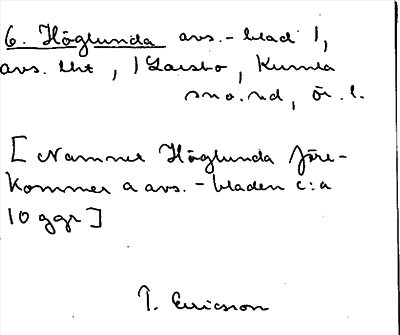 6. Höglunda avs.-blad 1,
avs. lht, i Larsbo, Kumla
sn o. hd, ör. l.
[Namnet Höglunda före-
kommer a avs.-bladen c:a
10 ggr]
T. Ericsson